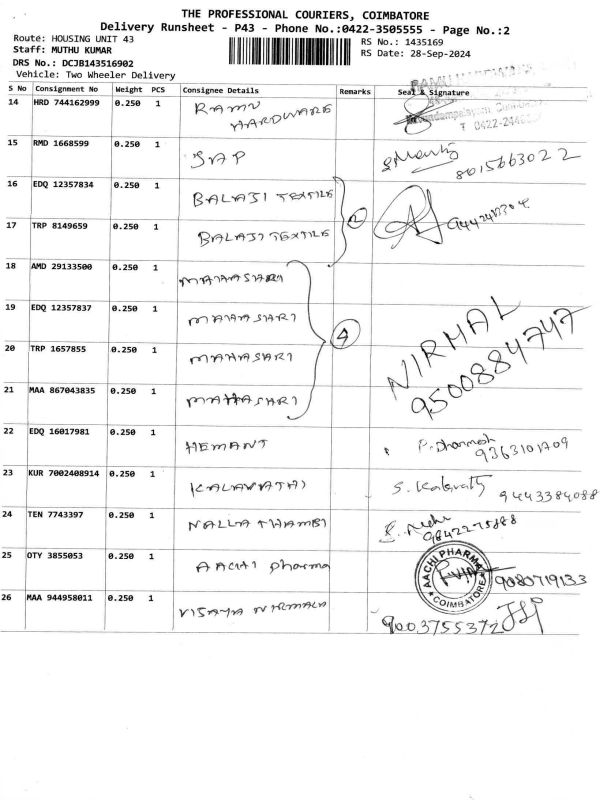 THE PROFESSIONAL COURIERS, COIMBATORE
Delivery Runsheet - P43 - Phone No.:0422-3505555 - Page No.:2
Route: HOUSING UNIT 43
RS No.: 1435169
Staff: MUTHU KUMAR
RS Date: 28-Sep-2024
DRS No.: DCJB143516902
Vehicle: Two Wheeler Delivery
S No Consignment No Weight PCS Consignee Details Remarks Seal & Signature
14 HRD 744162999 0.250 1 RAMU
HARDWARE
T 0422-2446
15 RMD 1668599 0.250 1 JAP
8015663022
16 EDQ 12357834 0.250 1 BALAJI TEXTILE
2
17 TRP 8149659 0.250 1 BALAJI TEXTILE
18 AMD 29133500 0.250 1 MAHASHRI
19 EDQ 12357837 0.250 1 MAHASHRI
4 NIRMAL
20 TRP 1657855 0.250 1 MAHASHRI
9500884747
21 MAA 867043835 0.250 1 MAHASHRI
22 EDQ 16017981 0.250 1 HEMANT P. Dharmesh
9363101709
23 KUR 7002408914 0.250 1 KALAVATHI S. Kalavathy 9443384088
24 TEN 7743397 0.250 1 NALLATHAMBI
9842275888
25 OTY 3855053 0.250 1 AACHI pharma AACHI PHARMA COIMBATORE 9080719133
26 MAA 944958011 0.250 1 VIJAYA NIRMALA
9003755372